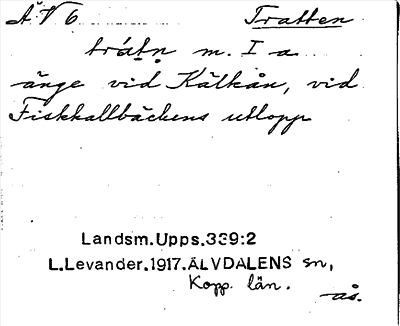 Å V 6 Tratten
tràtn m. I a
änge vid Kälkån, vid
Fiskkallbäckens utlopp
Landsm.Upps.339:2
L.Levander.1917.ÄLVDALENS sn,
Kopp. län.
ås.